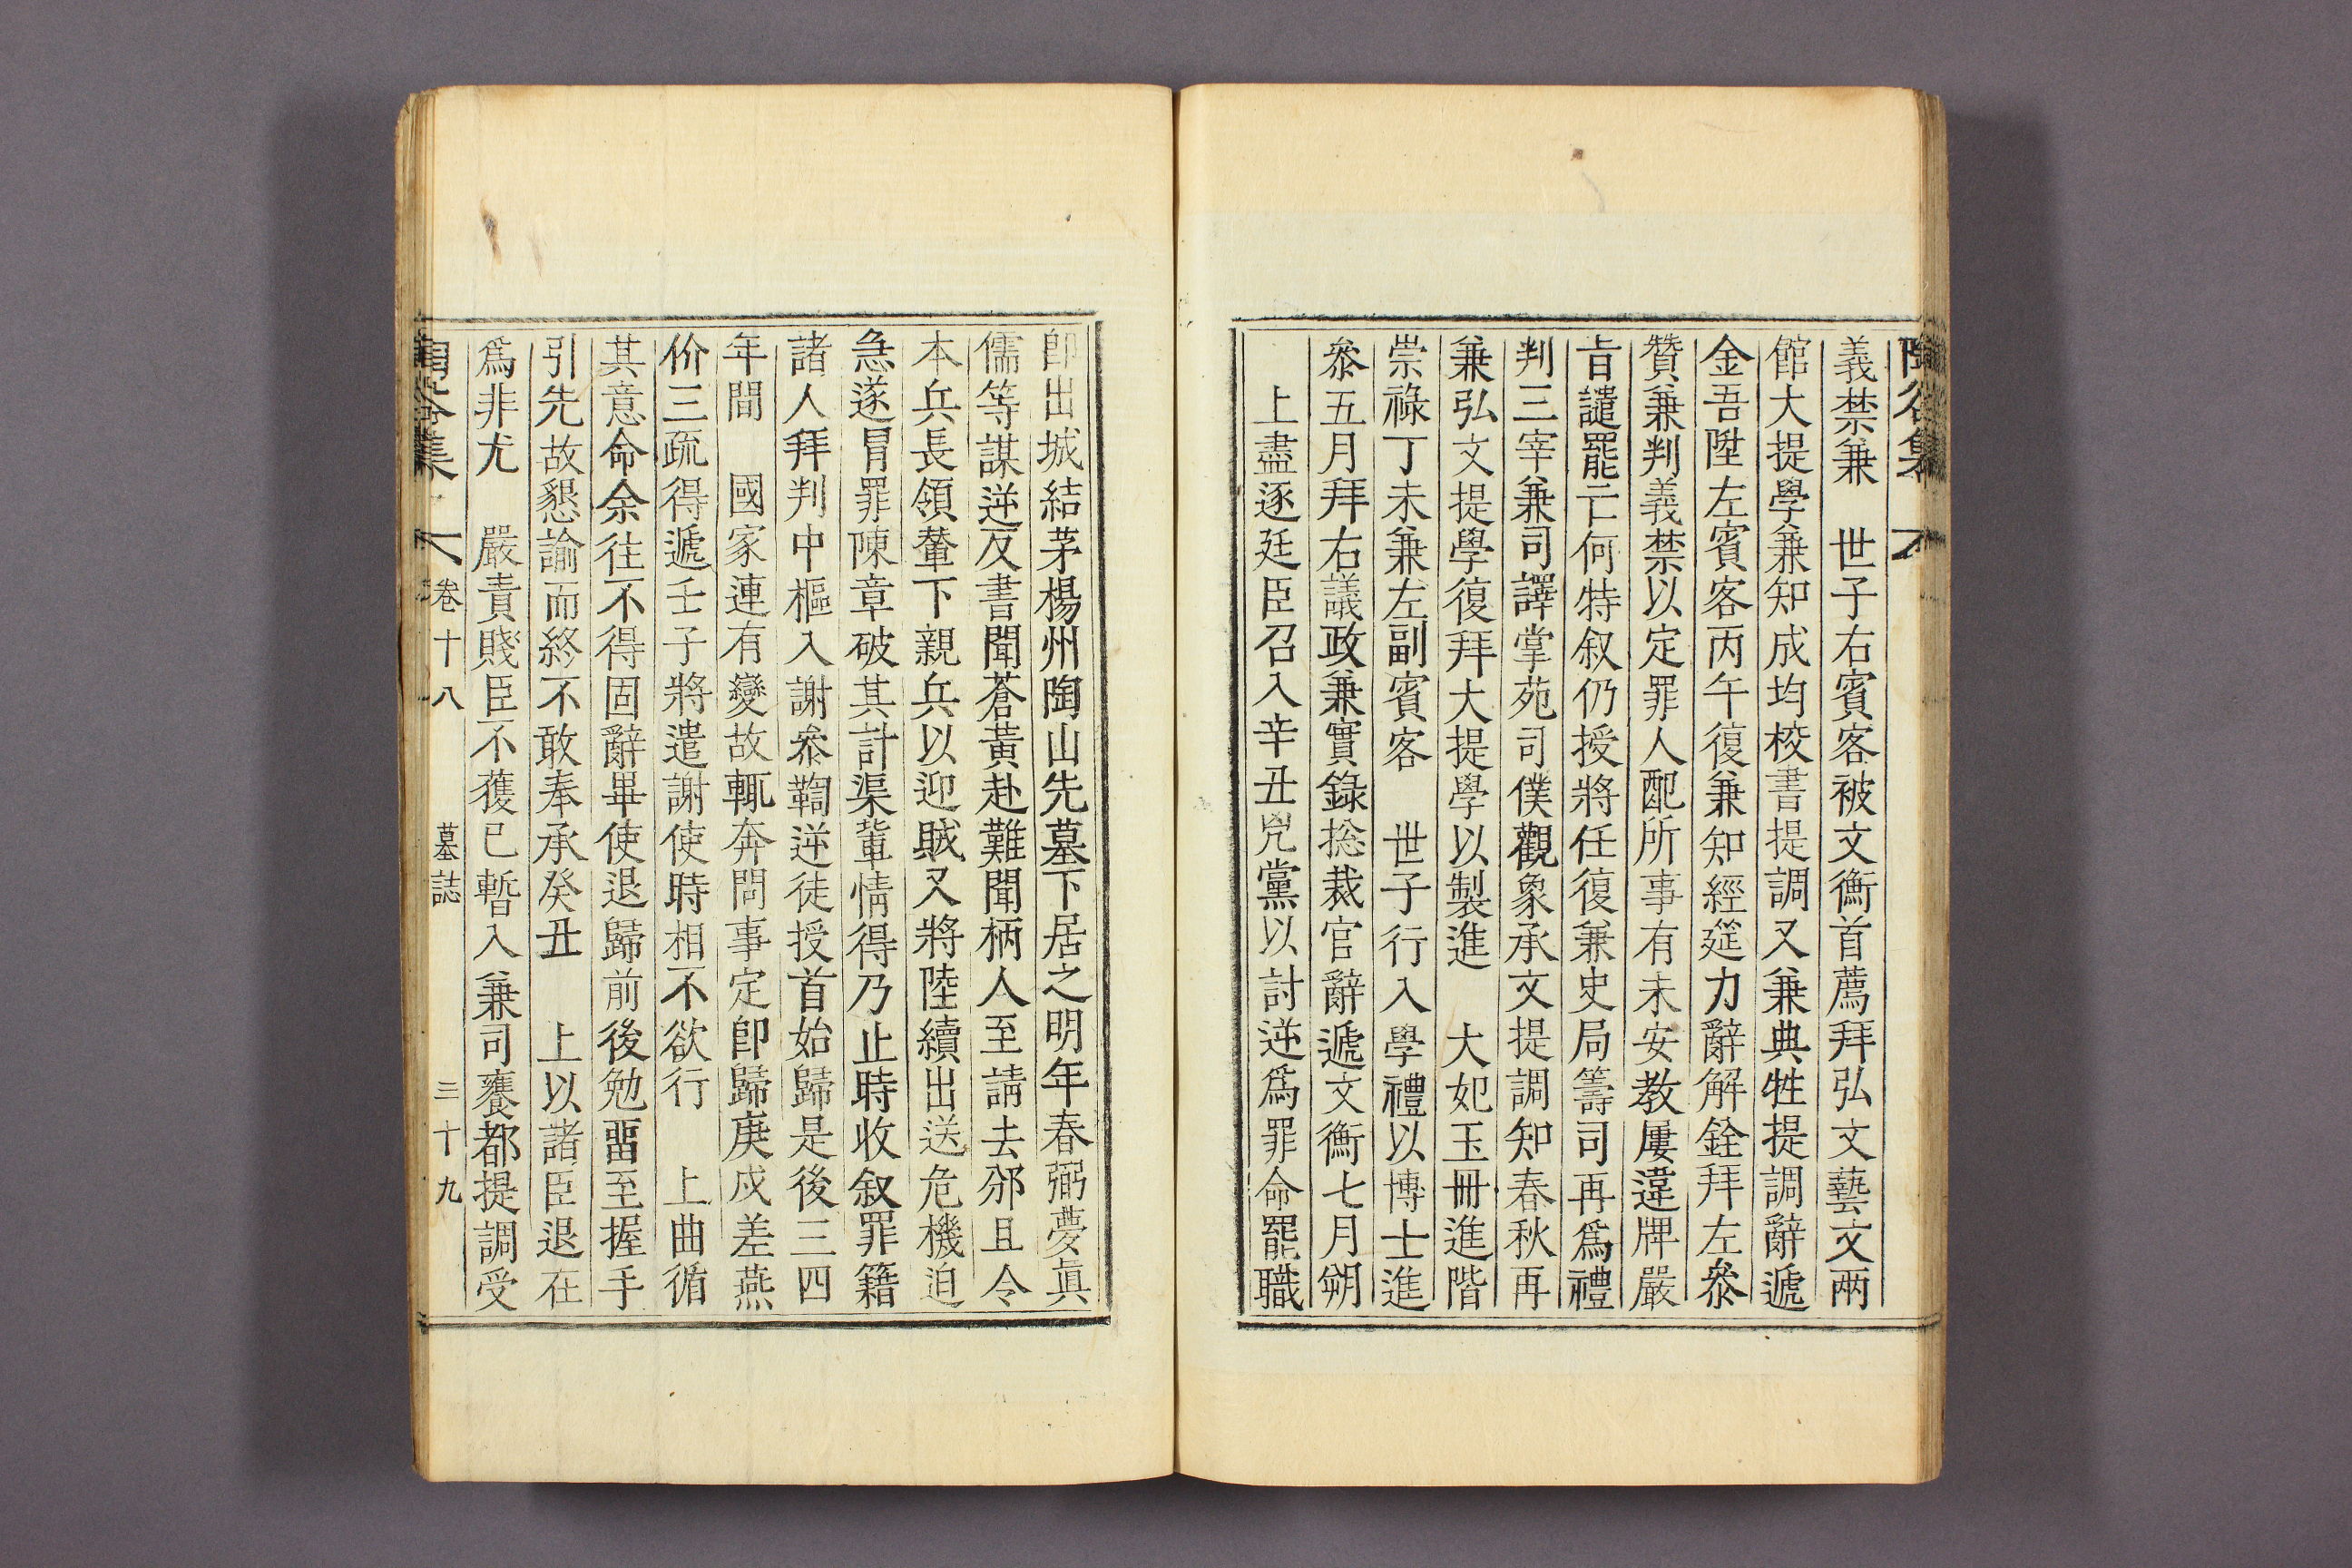 陶谷集
義禁兼　世子右賓客被文衡首薦拜弘文藝文兩
館大提學兼知成均校書提調又兼典牲提調辭遞
金吾陞左賓客丙午復兼知經筵力辭解銓拜左叅
贊兼判義禁以定罪人配所事有未安教屢違牌嚴
旨譴罷亡何特叙仍授將任復兼史局籌司再爲禮
判三宰兼司譯掌苑司僕觀象承文提調知春秋再
兼弘文提學復拜大提學以製進　大妃玉冊進階
崇祿丁未兼左副賓客　世子行入學禮以博士進
叅五月拜右議政兼實錄捴裁官辭遞文衡七月朔
上盡逐廷臣召入辛丑兇黨以討逆爲罪命罷職
卽出城結茅楊州陶山先墓下居之明年春弼夢眞
儒等謀逆反書聞蒼黃赴難聞柄人至請去邠且令
本兵長領輦下親兵以迎賊又將陸續出送危機迫
急遂冒罪陳章破其計渠輩情得乃止時收叙罪籍
諸人拜判中樞入謝叅鞫逆徒授首始歸是後三四
年間　國家連有變故輒奔問事定卽歸庚戌差燕
价三疏得遞壬子將遣謝使時相不欲行　上曲循
其意命余往不得固辭畢使退歸前後勉留至握手
引先故懇諭而終不敢奉承癸丑　上以諸臣退在
爲非尤　嚴責賤臣不獲已暫入兼司饔都提調受
陶谷集　卷十八　墓誌　三十九